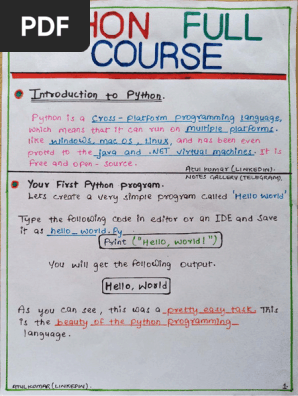 PDF
HON FULL
COURSE
Introduction to Python.
Python is a cross-platform programming language,
which means that it can run on multiple platforms.
like windows, mac os, linux, and has been even
proted to the java and .NET virtual machines. It is
free and open-source.
ATUL KUMAR (LINKEDIN).
NOTES GALLERY (TELEGRAM).
Your First Python program.
Lets create a very simple program called 'Hello World'
Type the following code in editor or an IDE and save
it as hello_world.py
Print ("Hello, World!")
You will get the following output.
Hello, World
As you can see, this was a pretty easy task. This
is the beauty of the python programming
language.
ATUL KUMAR (LINKEDIN).
1